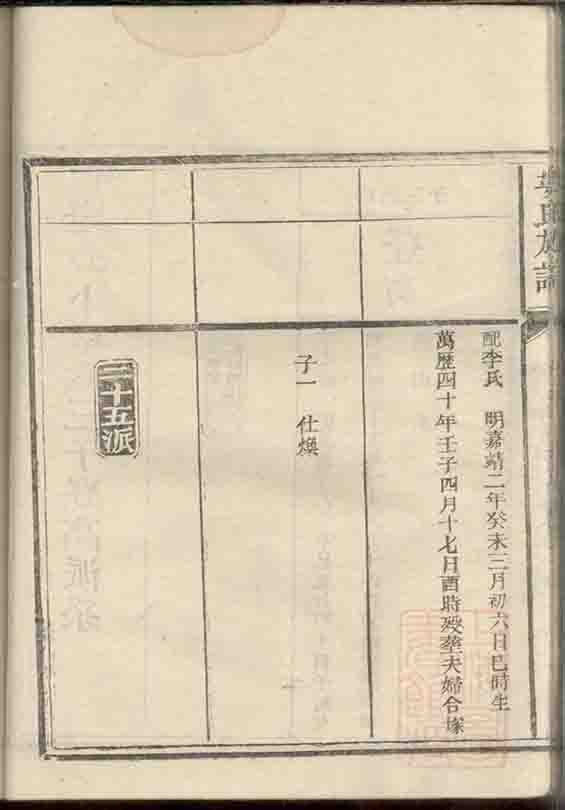 氏族譜
配李氏　明嘉靖二年癸未三月初六日巳時生
萬歷四十年壬子四月十七日酉時歿塟夫婦合塚
子一　仕煥
三十五派